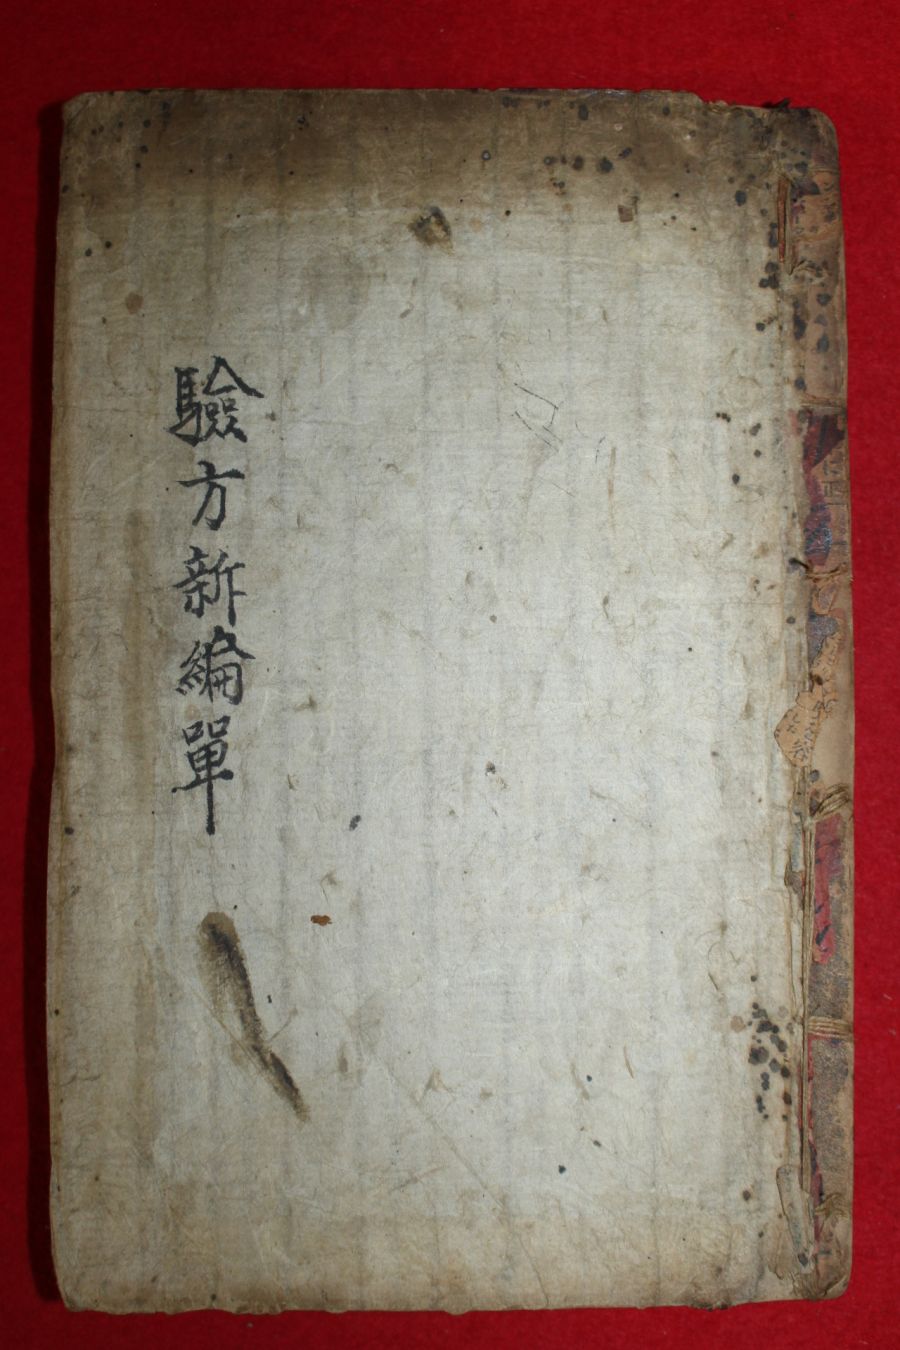 驗方新編單